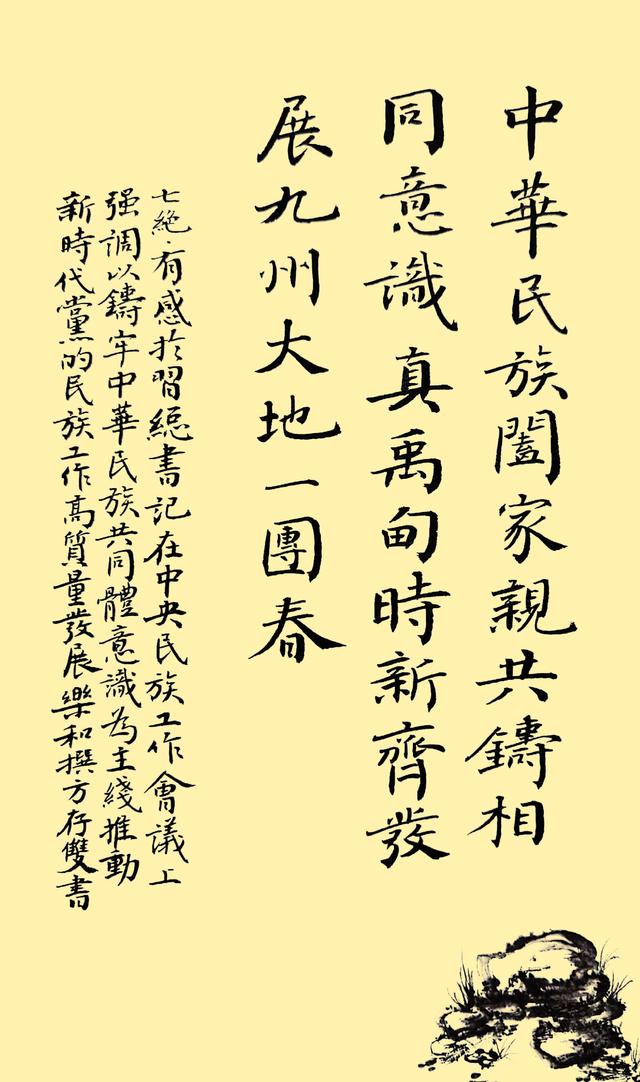 中華民族闔家親共鑄相
同意識真禹甸時新齊發
展九州大地一團春
七絶·有感於習總書記在中央民族工作會議上
强調以鑄牢中華民族共同體意識為主綫推動
新時代黨的民族工作高質量發展樂和撰方存雙書